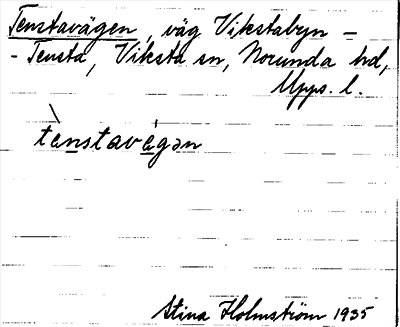 Tenstavägen, väg Vikstabyn –
- Tensta, Viksta sn, Norunda hd,
Upps. l.
tènstavégən
Stina Holmström 1935